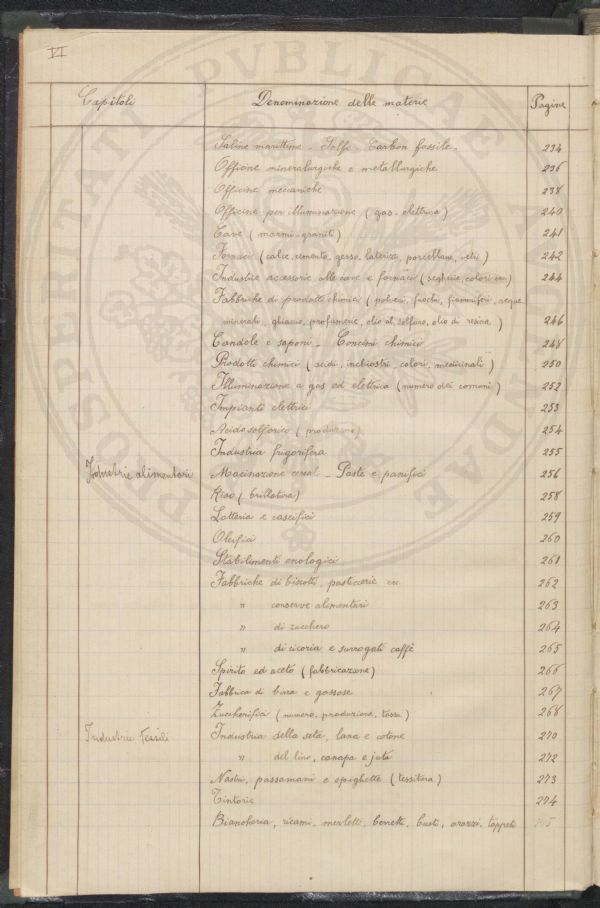 VI
Capitoli Denominazione delle materie Pagine
Saline marittime - Solfo - Carbon fossile - 234
Officine mineralurgiche e metallurgiche 236
Officine meccaniche 238
Officine per illuminazione (gas - elettrica) 240
Cave (marmi - graniti) 241
Fornaci (calce, cemento, gesso, laterizi, porcellane, vetri) 242
Industrie accessorie alle cave e fornaci (segherie, colori ecc.) 244
Fabbriche di prodotti chimici (polveri, fuochi, fiammiferi, acque
minerali, ghiaccio, profumerie, olio al solfuro, olio di resina) 246
Candele e saponi - Concimi chimici 248
Prodotti chimici (acidi, inchiostri, colori, medicinali) 250
Illuminazione a gas ed elettrica (numero dei comuni) 252
Impianti elettrici 253
Acido solforico (produzione) 254
Industria frigorifera 255
Industrie alimentari Macinazione cereali - Paste e panifici 256
Riso (brillatura) 258
Latteria e caseifici 259
Oleifici 260
Stabilimenti enologici 261
Fabbriche di biscotti, pasticcerie ecc. 262
" conserve alimentari 263
" di zucchero 264
" di cicoria e surrogati caffè 265
Spirito ed aceto (fabbricazione) 266
Fabbrica di birra e gassose 267
Zuccherifici (numero, produzione, tassa) 268
Industrie tessili Industria della seta, lana e cotone 270
" del lino, canapa e juta 272
Nastri, passamani e spighette (tessitura) 273
Tintorie 274
Biancheria, ricami, merletti, berretti, busti, arazzi, tappeti 275
PVBLICAE